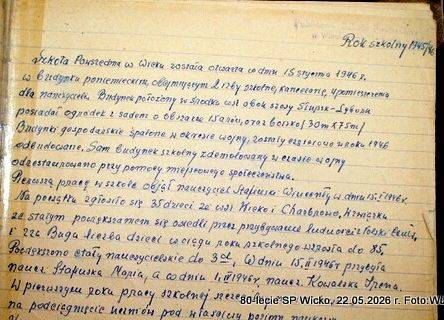 Rok szkolny 1945/46
Szkoła Powszechna w Wicku została otwarta w dniu 15 stycznia 1946 r.
w budynku poniemieckim, obejmującym 2 izby szkolne, kancelarię, i pomieszczenia
dla nauczycieli. Budynek położony w środku wsi obok szosy Słupsk-Łębork
posiadał ogródek z sadem o obszarze 15 arów, oraz boisko /30m x 75m/
Budynki gospodarskie spalone w okresie wojny, zostały częściowo w roku 1946
odbudowane. Sam budynek szkolny zdemolowany w czasie wojny
odrestaurowano przy pomocy miejscowego społeczeństwa.
Pierwszą pracę w szkole objął nauczyciel Stapiński Wincenty w dniu 15.I.1946 r.
Na początku zgłosiło się 35 dzieci ze wsi Wicko i Charbrowo, Wrzącka
ze stałym powiększaniem się osiedli przez przybywanie ludności z Polski
i zza Buga liczba dzieci w ciągu roku szkolnego wzrosła do 85.
Powiększono etaty nauczycielskie do 3ch. W dniu 15.II.1946 r. przybyła
naucz. Stapińska Maria, a w dniu 1.III 1946 r. naucz. Kowalska Irena.
W pierwszym roku pracy szkolnej
na podciągnięcie
80-lecie SP Wicko, 22.05.2026 r. Foto: